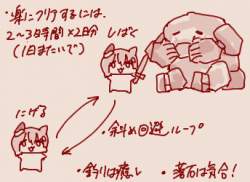 ・楽にクリアするには、
2〜3時間×2日分 しばく
(1日またいで)
にげる
・斜め回避ループ
・釣りは癒し ・落石は気合!